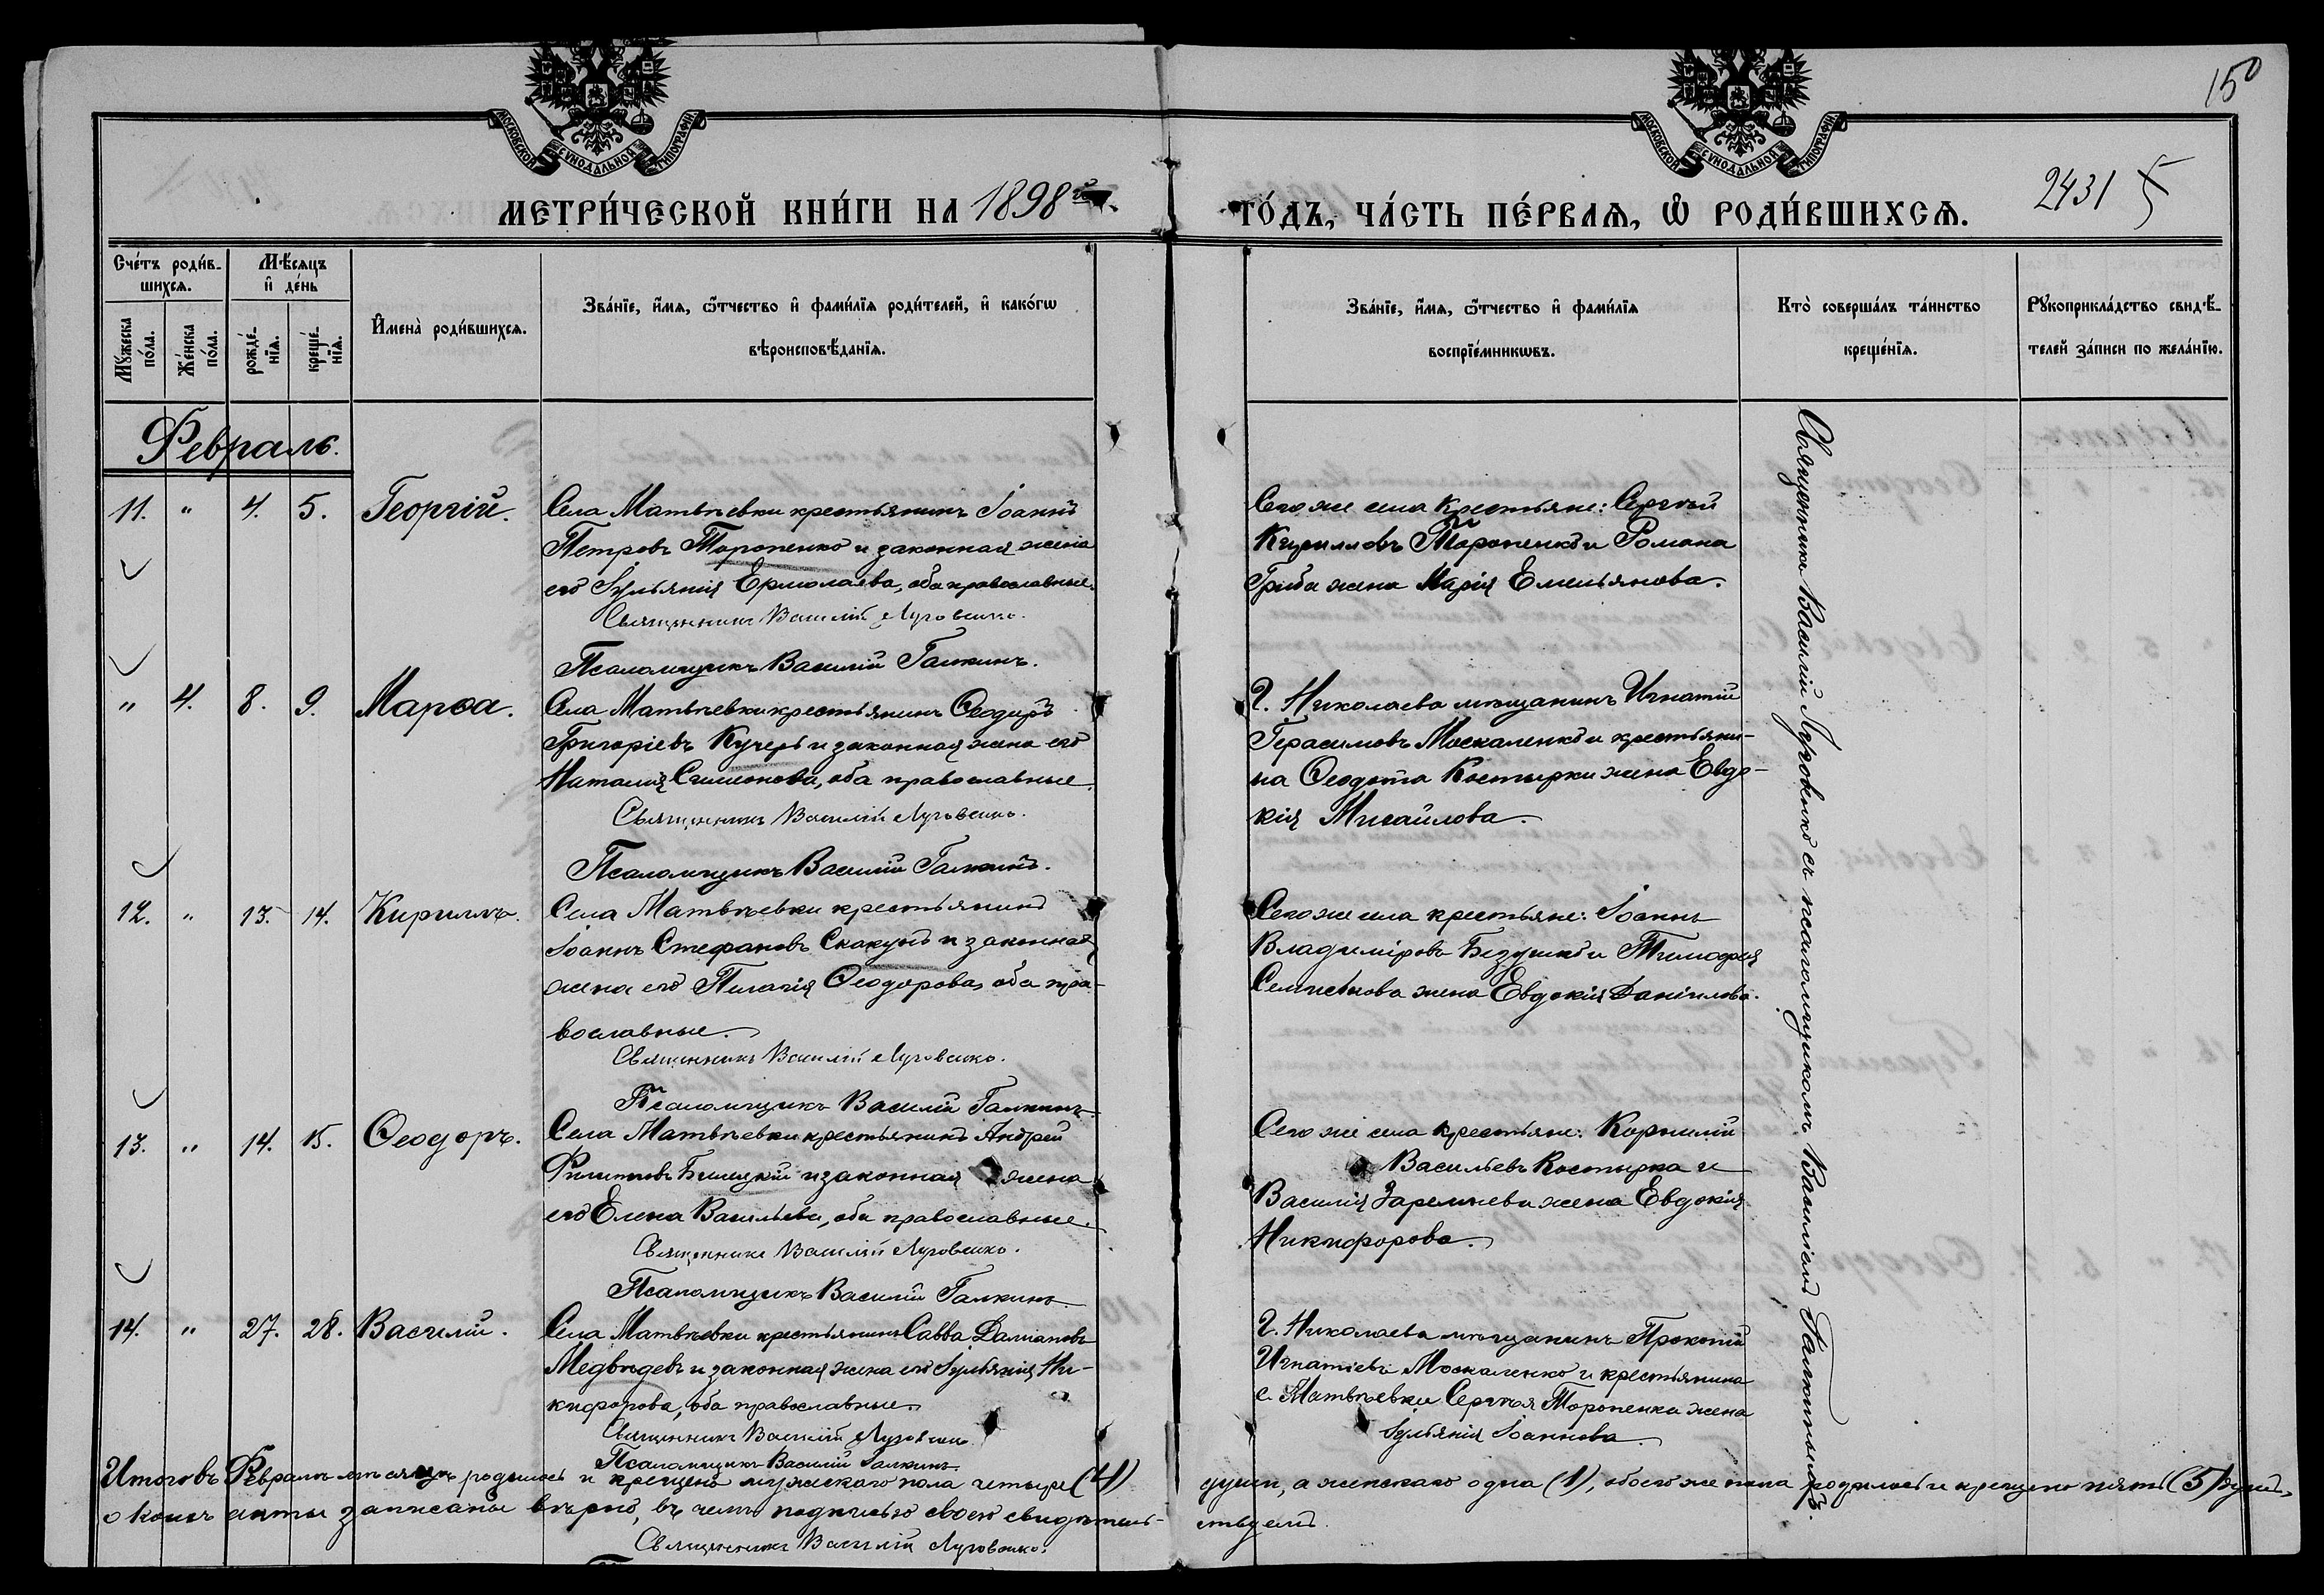 МОСКОВСКОЙ СУНОДАЛЬНОЙ ТИПОГРАФІИ
МОСКОВСКОЙ СУНОДАЛЬНОЙ ТИПОГРАФІИ
150
МЕТРИ́ЧЕСКОЙ КНИ́ГИ НА 1898й
ГО́ДЪ, ЧА́СТЬ ПЕ́РВАѦ, Ѡ РОДИ́ВШИХСѦ.
2431
5
Сче́тъ роди́в-
шихсѧ.
Мѣ́сѧцъ
и҆ де́нь
Мꙋ́жеска
по́ла.
Же́нска
по́ла.
рожде́-
нїѧ.
креще́-
нїѧ.
И҆мена̀ роди́вшихсѧ.
Зва́нїе, и҆́мѧ, ѻ҆́тчество и҆ фами́лїѧ роди́телей, и҆ како́гѡ
вѣроисповѣ́данїѧ.
Зва́нїе, и҆́мѧ, ѻ҆́тчество и҆ фами́лїѧ
воспрїе́мникѡвъ.
Кто̀ соверша́лъ та́инство
креще́нїѧ.
Рꙋкоприкла́дство свидѣ́-
телей за́писи по жела́нїю.
Февраль.
11. " 4. 5. Георгій.
Села Матвѣевки крестьянинъ Іоаннъ
Петровъ Тороненко и законная жена
его Іуліанія Ермолаева, оба православные.
Священникъ Василій Луговенко.
Псаломщикъ Василій Галкинъ.
Сего же села крестьяне: Сергѣй
Кирилловъ Тороненко и Романа
Гриба жена Марія Емельянова.
" 4. 8. 9. Марѳа.
Села Матвѣевки крестьянинъ Ѳеодоръ
Григоріевъ Кучеръ и законная жена его
Наталія Симеонова, оба православные.
Священникъ Василій Луговенко.
Псаломщикъ Василій Галкинъ.
Г. Николаева мѣщанинъ Игнатій
Герасимовъ Москаленко и крестьяни-
на Ѳеодота Костырки жена Евдо-
кія Михайлова.
12. " 13. 14. Кириллъ.
Села Матвѣевки крестьянинъ
Іоаннъ Стефановъ Скакунъ и законная
жена его Пелагія Ѳеодорова, оба пра-
вославные.
Священникъ Василій Луговенко.
Псаломщикъ Василій Галкинъ.
Сего же села крестьяне: Іоаннъ
Владиміровъ Бездушко и Тимофея
Семисынова жена Евдокія Даніилова.
13. " 14. 15. Ѳеодоръ.
Села Матвѣевки крестьянинъ Андрей
Филипповъ Билецкій и законная жена
его Елена Васильева, оба православные.
Священникъ Василій Луговенко.
Псаломщикъ Василій Галкинъ.
Сего же села крестьяне: Корнилій
Васильевъ Костырка и
Василія жена Евдокія
Никифорова.
14. " 27. 28. Василій.
Села Матвѣевки крестьянинъ Савва Даміановъ
Медвѣдевъ и законная жена его Іуліанія Ни-
кифорова, оба православные.
Священникъ Василій Луговенко.
Псаломщикъ Василій Галкинъ.
Г. Николаева мѣщанинъ Прокопій
Игнатіевъ Москаленко и крестьянина
с. Матвѣевки Сергѣя Тороненка жена
Іуліанія Іоаннова.
Священникъ Василій Луговенко съ псаломщикомъ Василіемъ Галкинымъ.
Итого въ Февралѣ мѣсяцѣ родилось и крещено мужскаго пола четыре (4)
души, а женскаго одна (1), обоего же пола родилось и крещено пять (5) душъ,
о коихъ акты записаны вѣрно, въ чемъ подписью своею свидѣтель-
ствуемъ.
Священникъ Василій Луговенко.